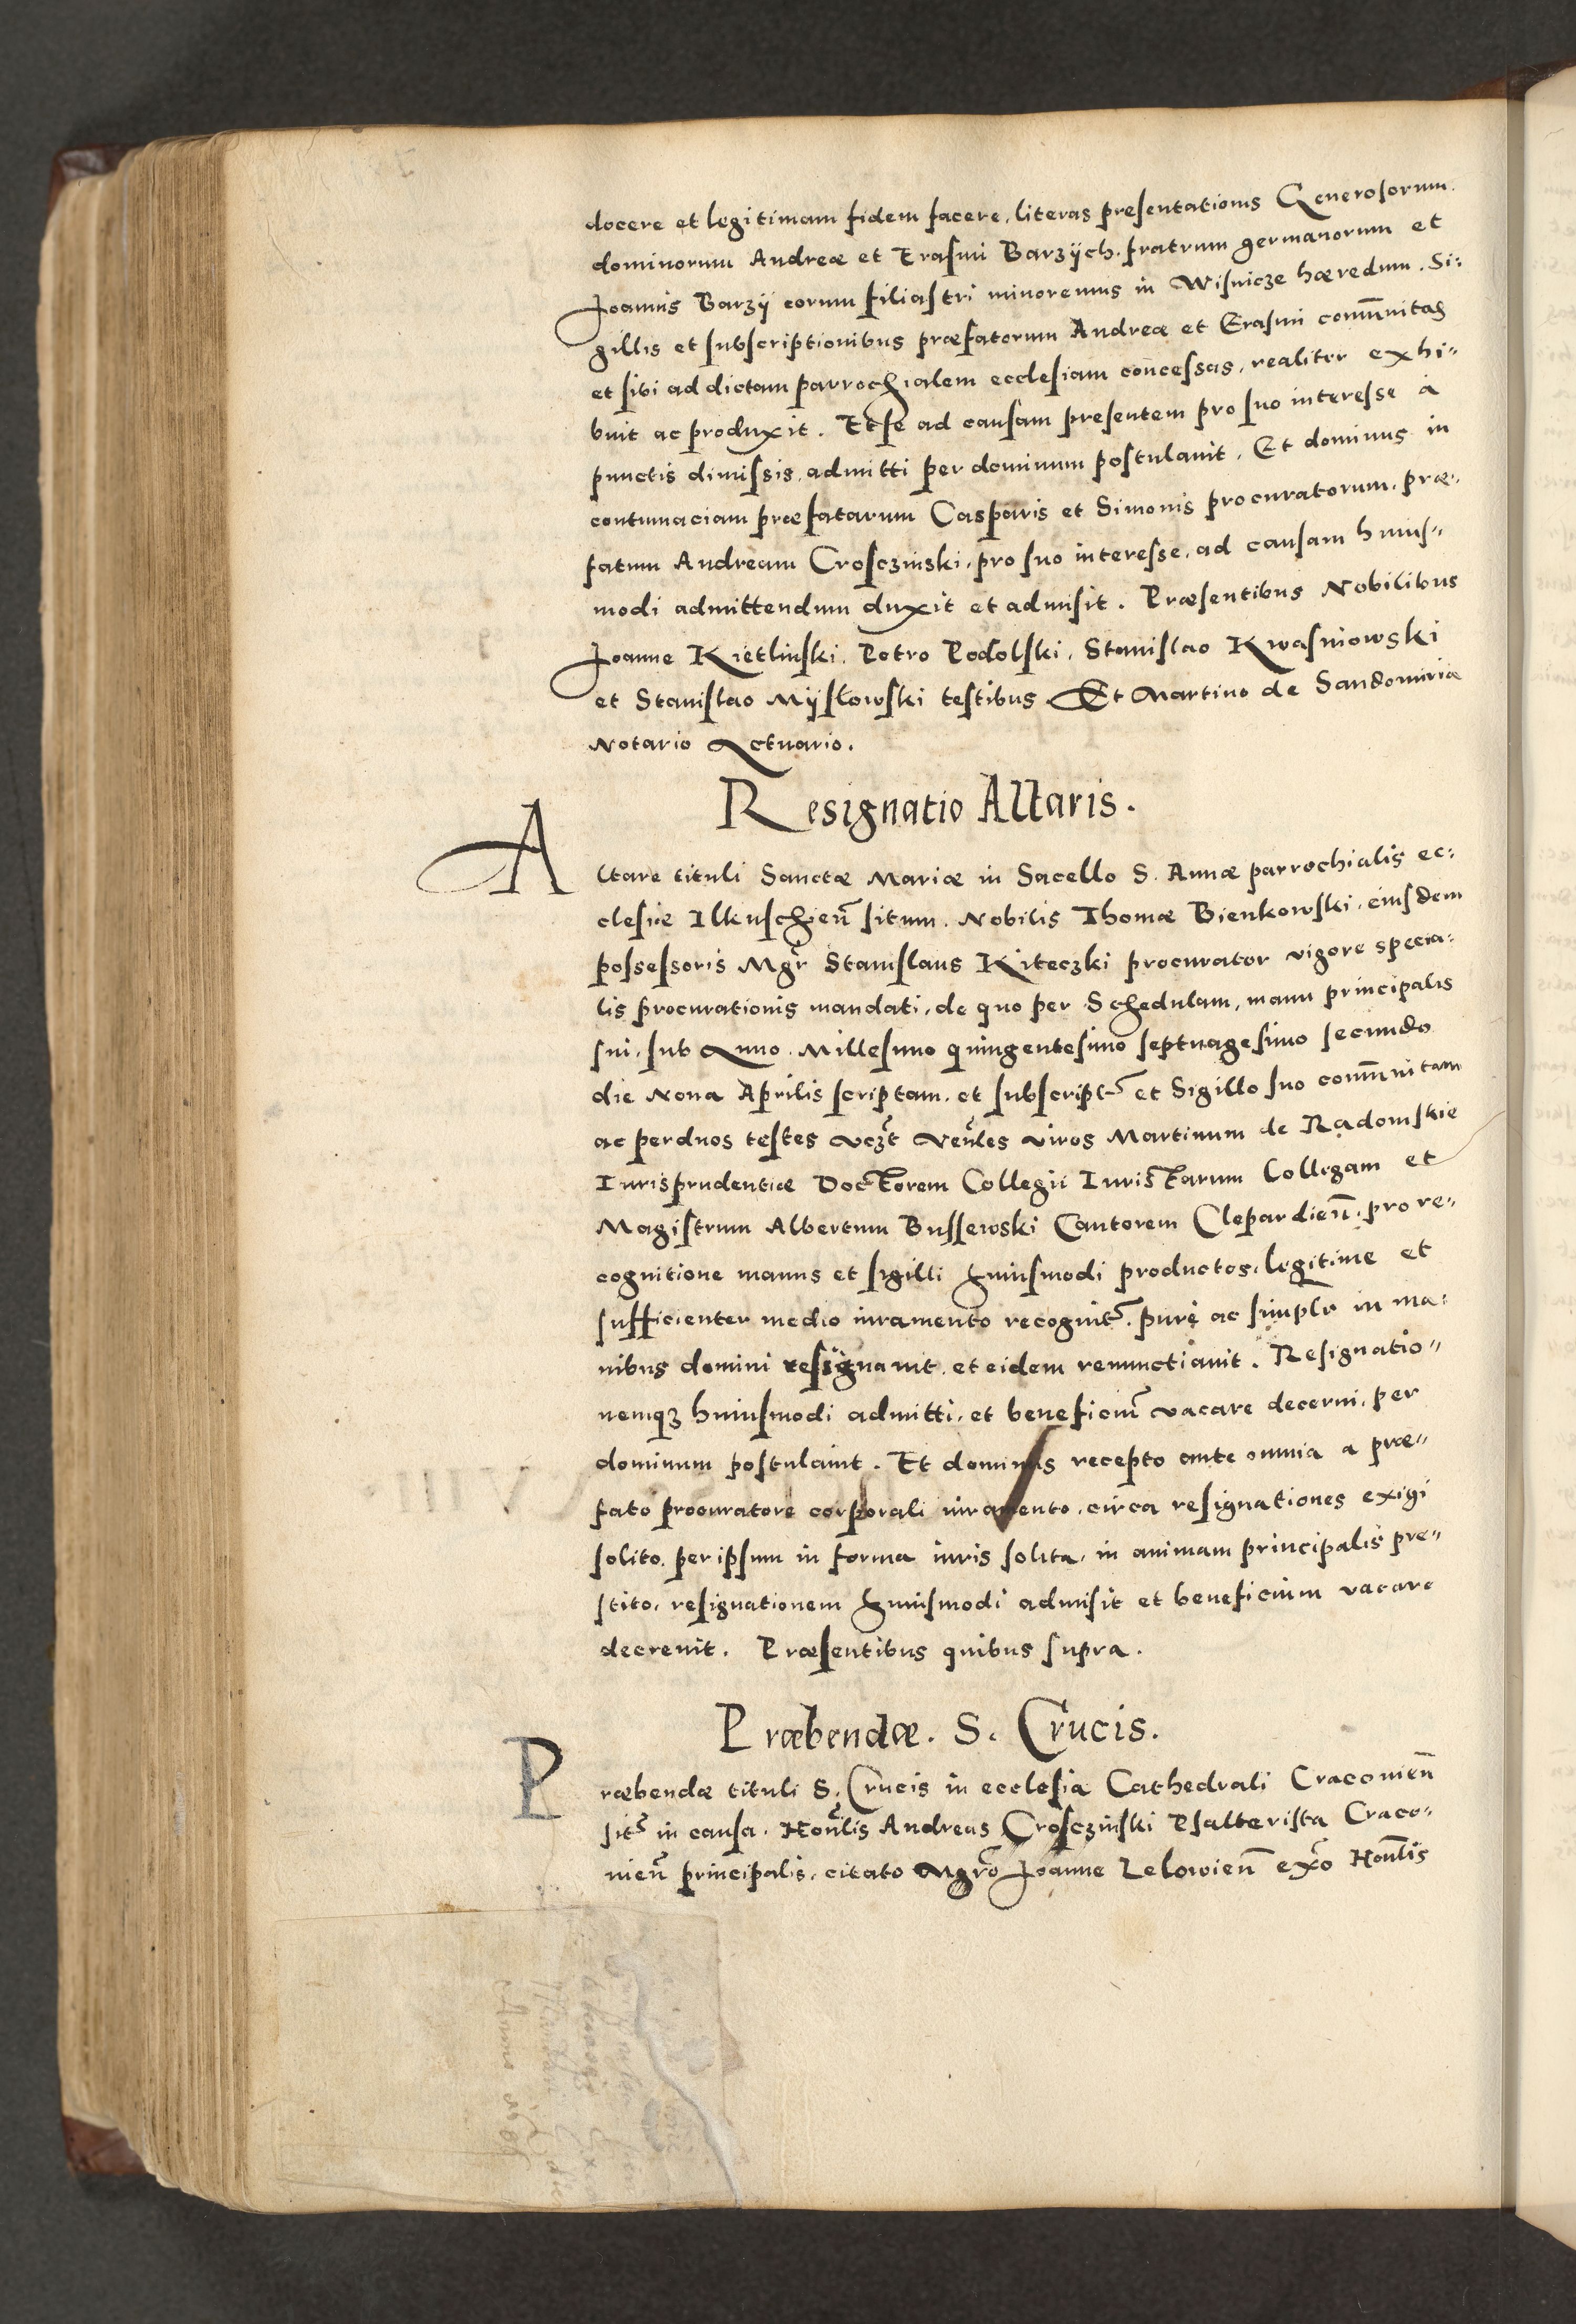 docere et legitimam fidem facere, literas presentationis Generosorum.
dominorum Andreæ et Erasmi Barzÿch. fratrum germanorum et
Joannis Barzÿ eorum filiastri minorennis in Wisnicze hæredum. Si:
gillis et subscriptionibus præfatorum Andreæ et Erasmi com̄unitas
et sibi ad dictam parrochialem ecclesiam concessas, realiter exhi"
buit ac produxit. Et se ad causam presentem pro suo interesse à
punctis dimissis, admitti per dominum postulauit. Et dominus in
contumaciam præfatarum Casparis et Simonis procuratorum. præ"
fatum Andream Crosczinski, pro suo interesse, ad causam huius"
modi admittendum duxit et admisit. Præsentibus Nobilibus
Joanne Kietlinski. Petro Podolski. Stanislao Kwasniowski
et Stanislao Mÿsłowski testibus Et Martino de Sandomiria
Notario Actuario.
Resignatio Altaris.
Altare tituli Sanctæ Mariæ in Sacello S. Annæ parrochialis ec:
clesiæ Ilkuschien̄ situm. Nobilis Thomæ Bienkowski. eiusdem
possessoris Mgr̄ Stanislaus Kiteczki procurator vigore specia:
lis procurationis mandati, de quo per Schedulam, manu principalis
sui, sub Anno. Millesimo quingentesimo septuagesimo secundo
die Nona Aprilis scriptam. et subscript̄ et Sigillo suo com̄unitam
ac per duos testes vcz̄t ven̄les viros Martinum de Radomskie
Iurisprudentiæ Doctorem Collegii Iuristarum Collegam et
Magistrum Albertum Bussewski Cantorem Clepardien̄. pro re"
cognitione manus et sigilli huiusmodi productos, legitime et
sufficienter medio iuramento recognit̄. pure ac simpl̄r in ma:
nibus domini resignauit. et eidem renunctiauit. Resignatio"
nemqȝ huiusmodi admitti. et beneficiū vacare decerni, per
dominum postulauit. Et dominus recepto ante omnia a præ"
fato procuratore corporali iuramento, circa resignationes exigi
solito, per ipsum in forma iuris solita, in animam principalis pre"
stito, resignationem huiusmodi admisit et beneficium vacare
decreuit. Præsentibus quibus supra.
Præbendæ. S. Crucis.
Præbendæ tituli S. Crucis in ecclesia Cathedrali Cracouien̄
sit̄ in causa. Hon̄lis Andreas Crosczinski Psalterista Craco"
uien̄ principalis, citato Mgr̄o Joanne Lelowien̄ ex̄o Hon̄lis